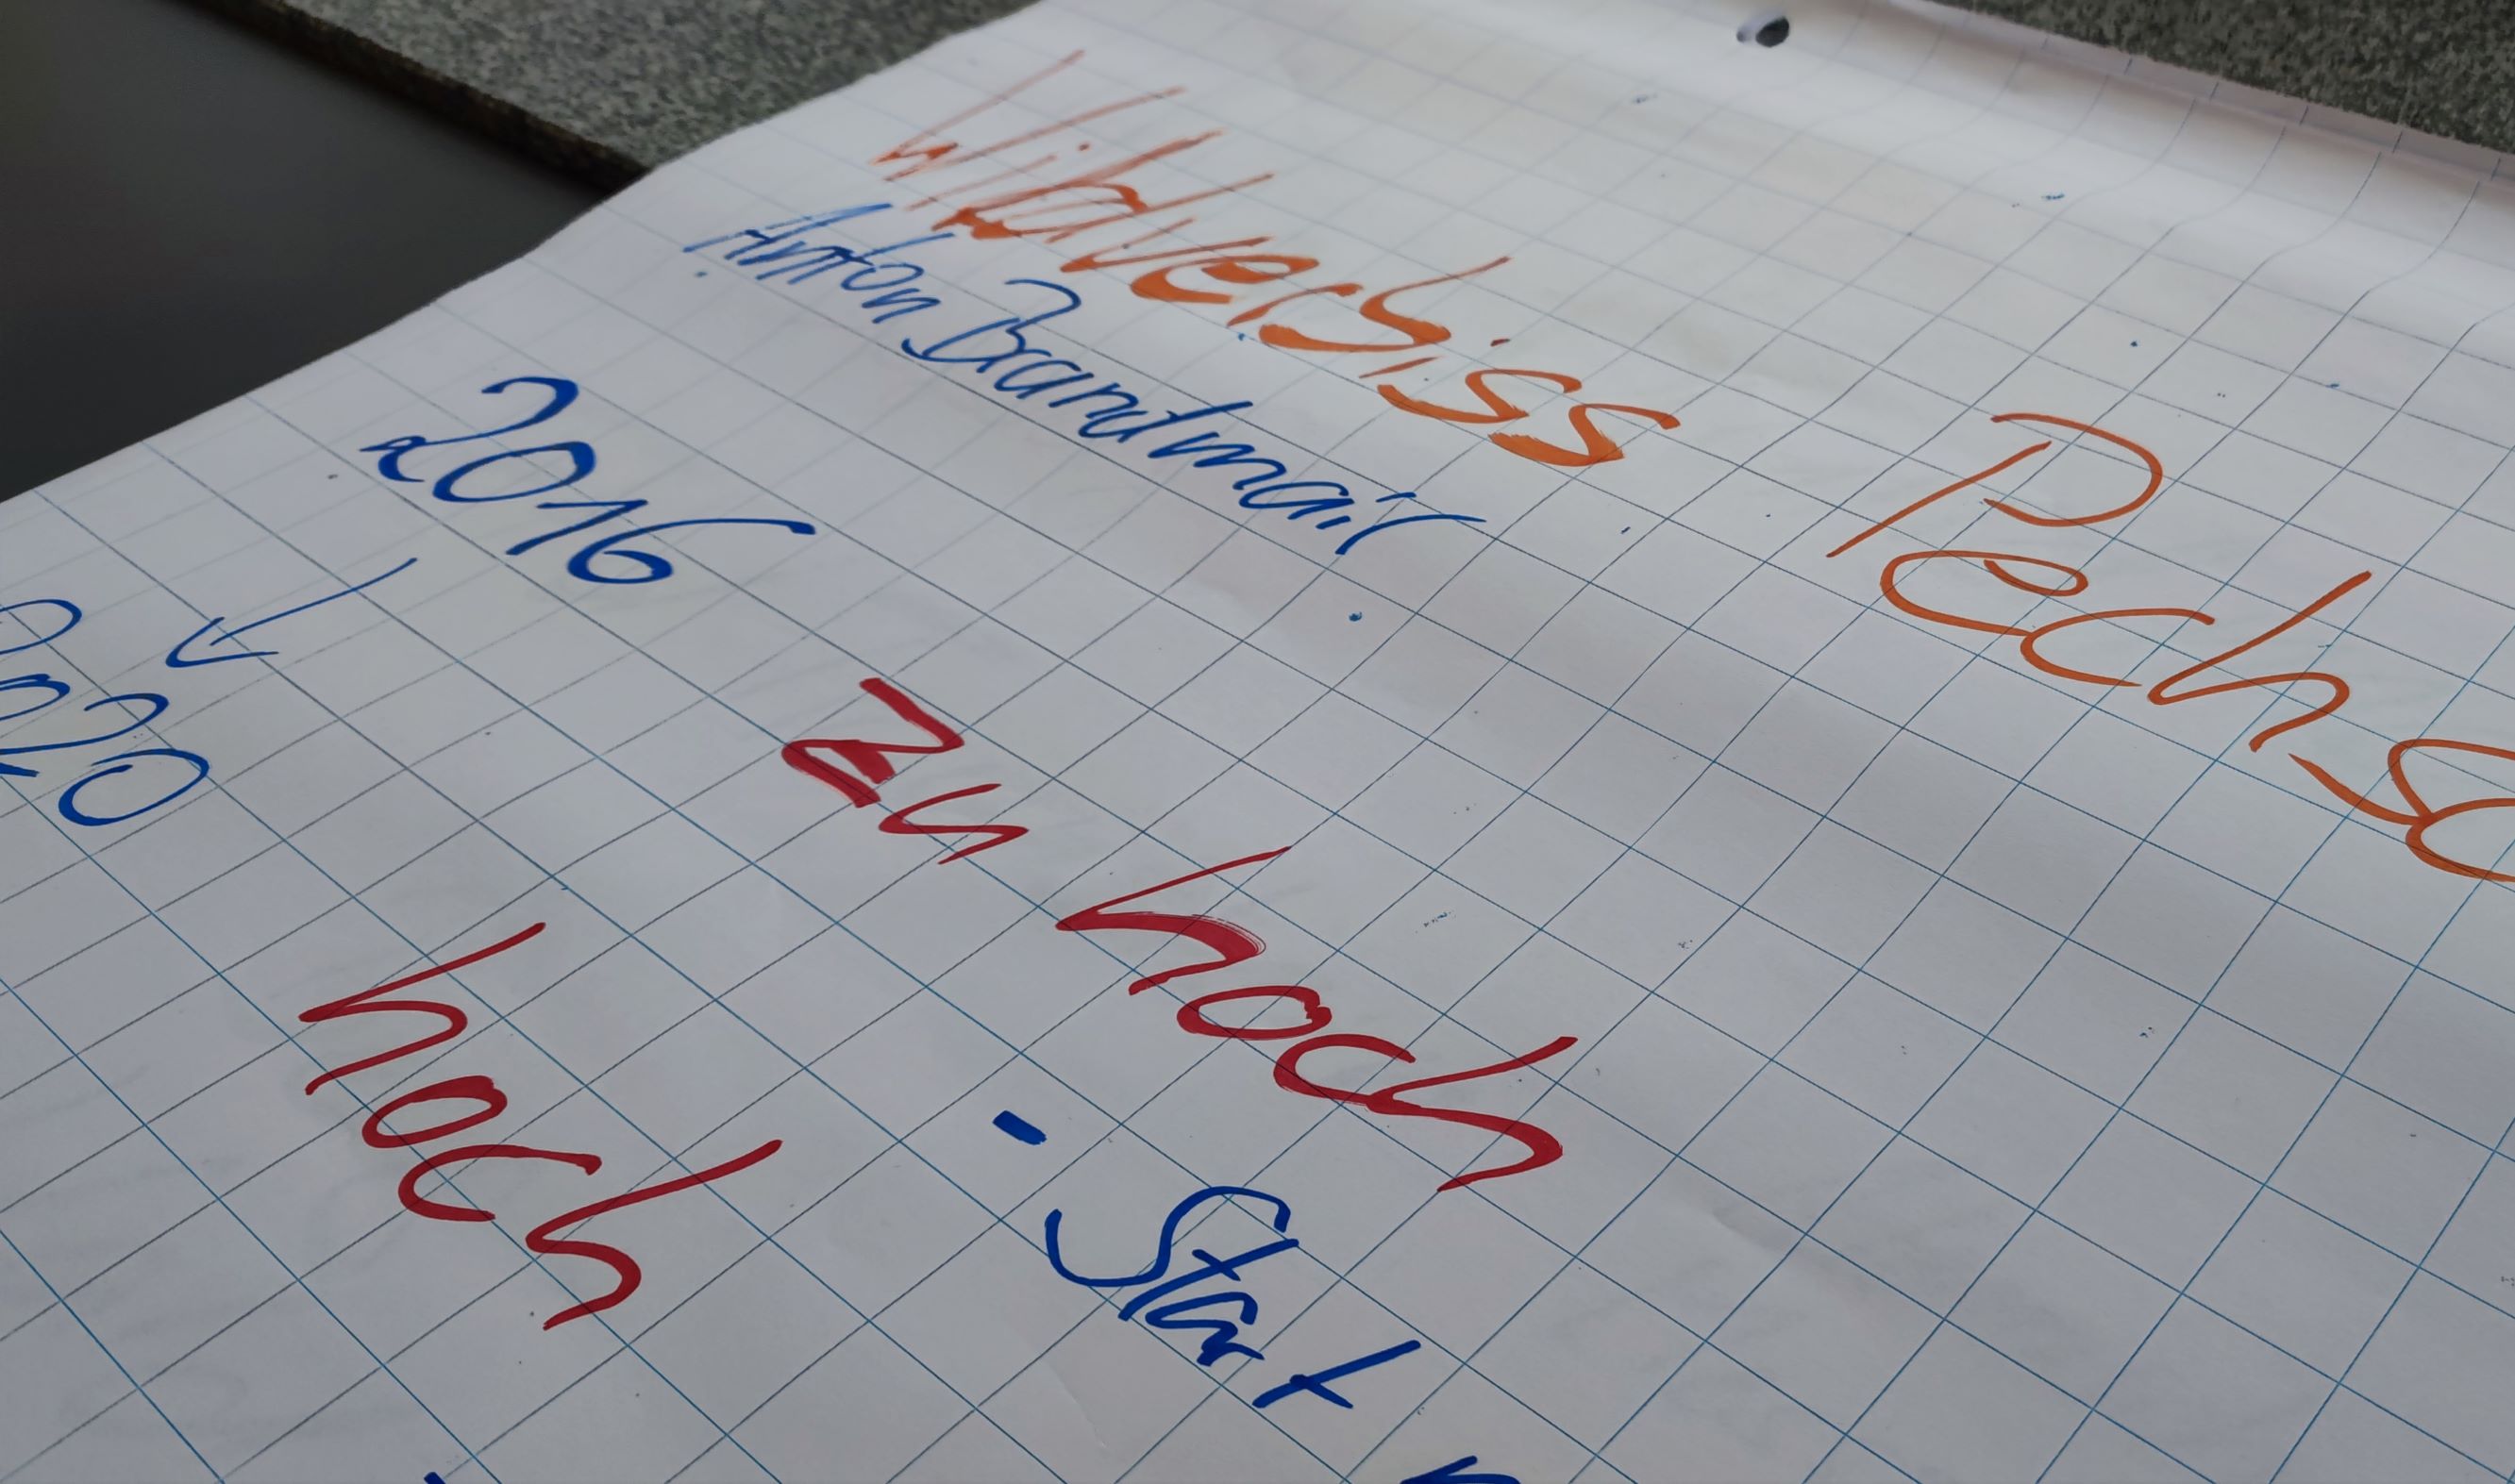 Wildverbiss Pechs
Anton Brandmair
2016
2020
zu hoch
hoch
- Start